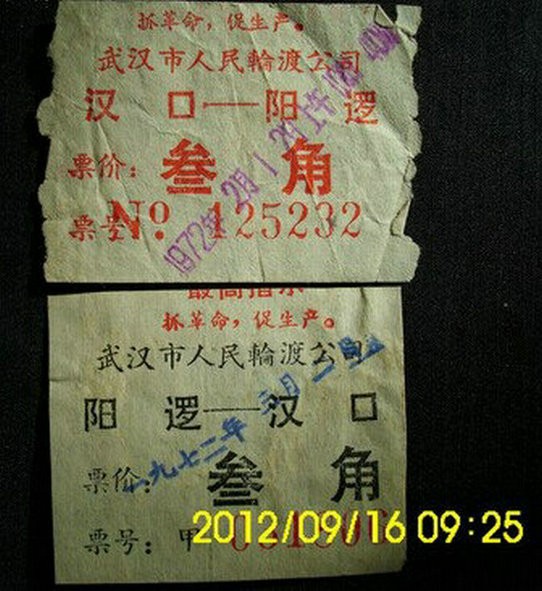 抓革命，促生产。
武汉市人民輪渡公司
汉 口——阳 逻
票价： 叁 角
票号 No. 125232
1972年2月1日
最高指示
抓革命，促生产。
武汉市人民輪渡公司
阳 逻——汉 口
一九七二年 月一
票价： 叁 角
票号： 甲
2012/09/16 09:25